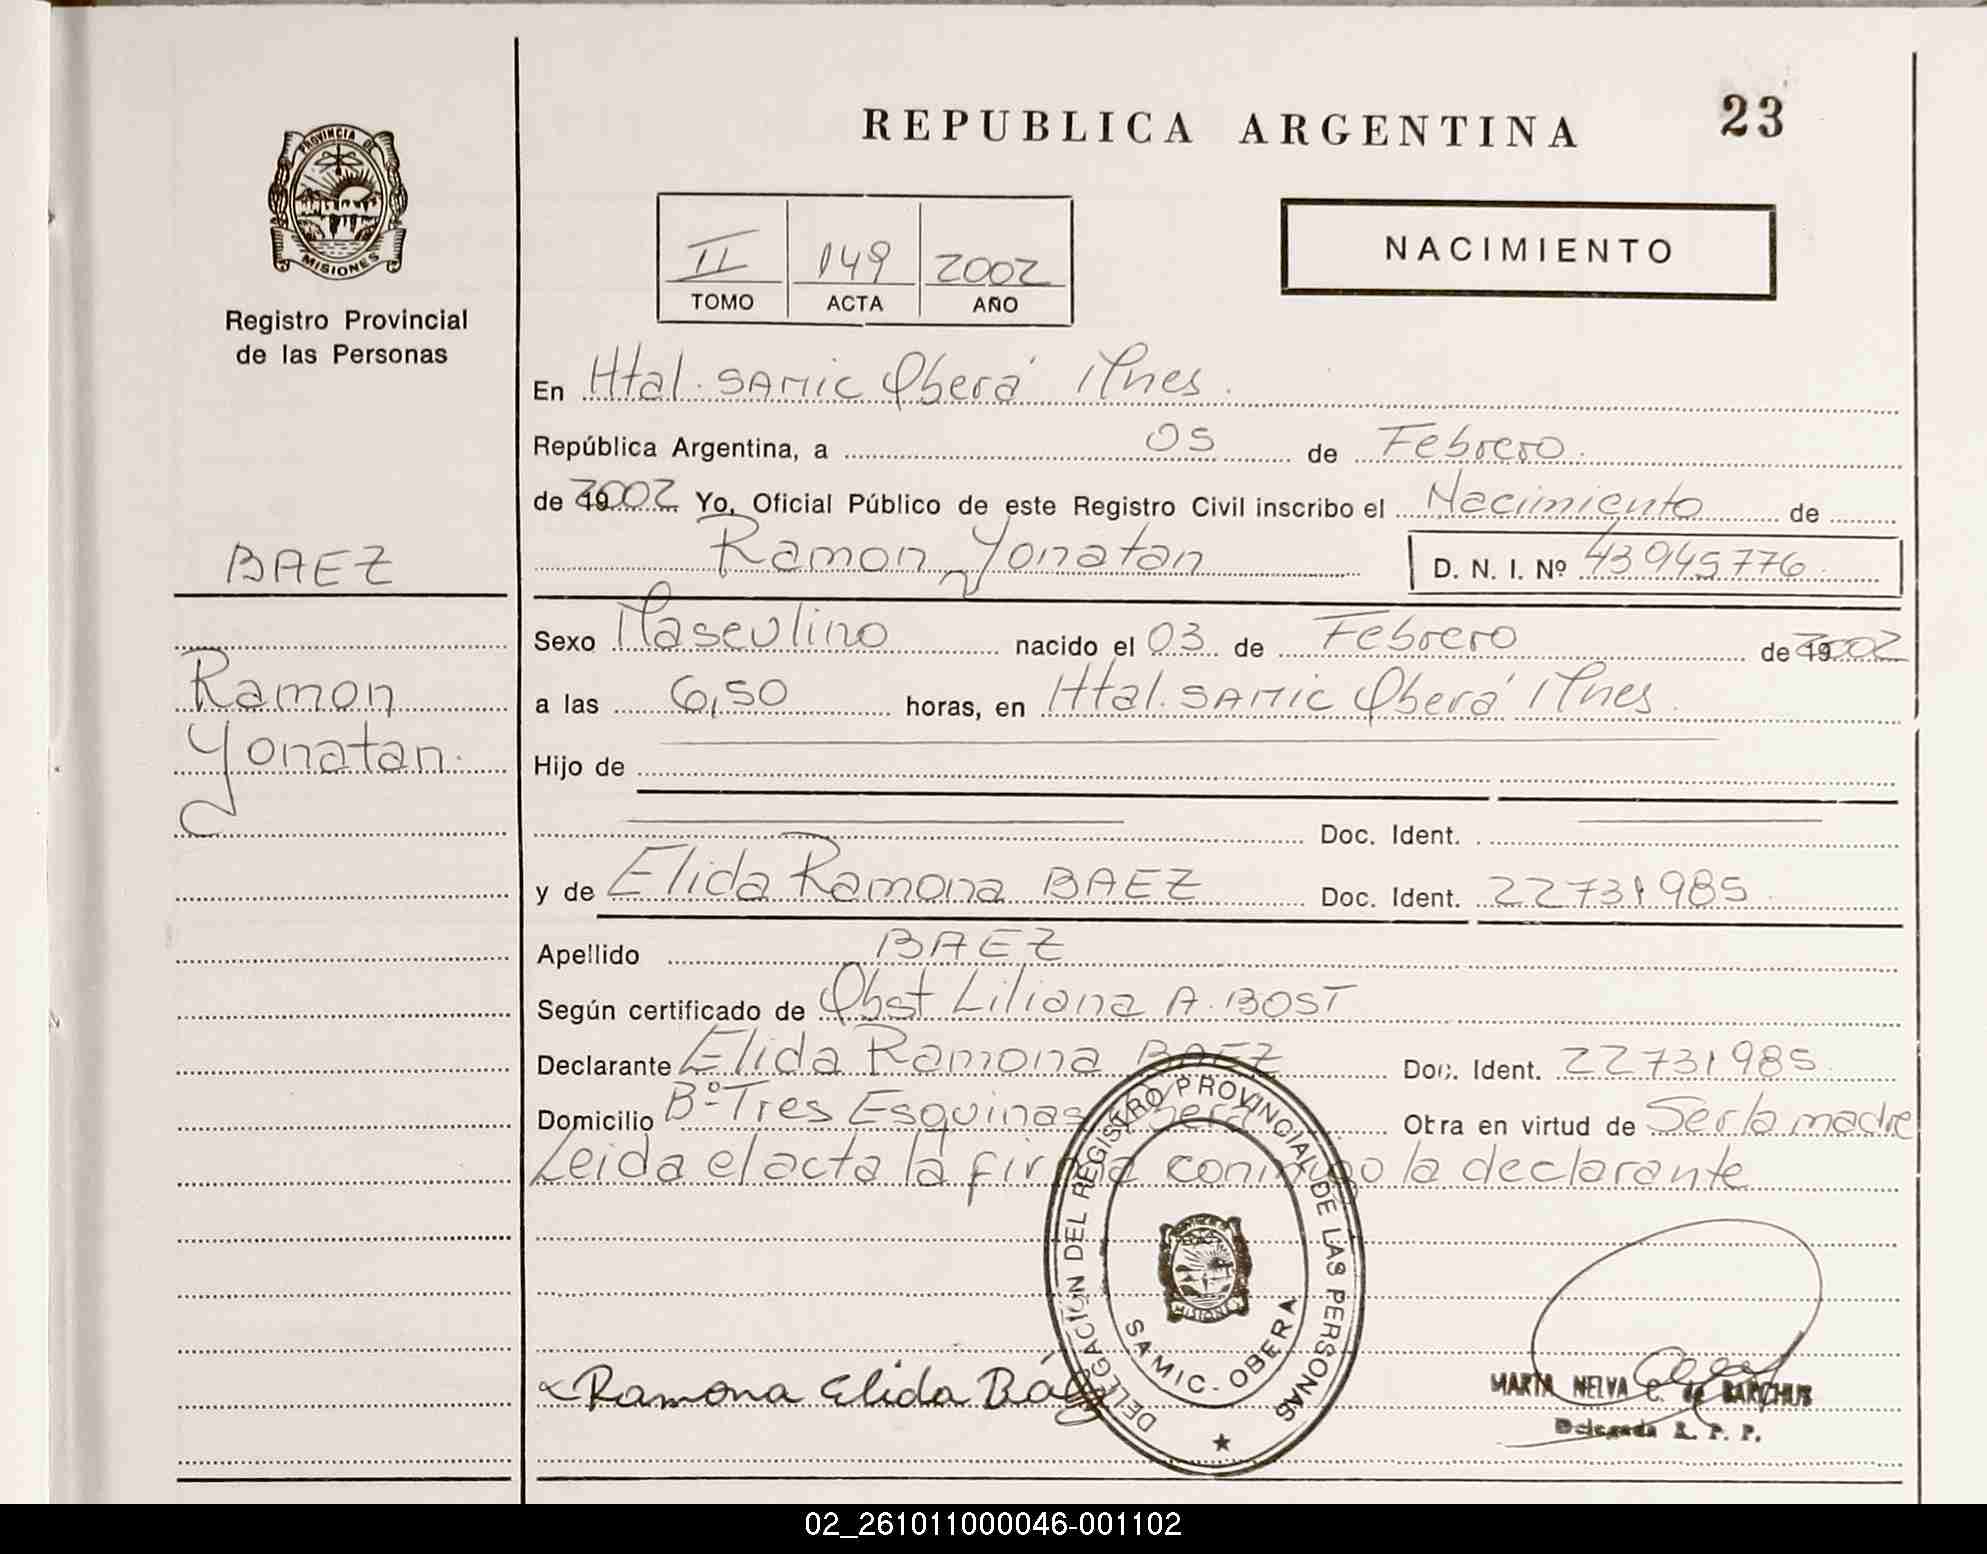 REPUBLICA ARGENTINA
23
PROVINCIA DE MISIONES
Registro Provincial
de las Personas
II 149 2002
TOMO ACTA AÑO
NACIMIENTO
En Htal. SAMIC Oberá Mnes.
República Argentina, a 05 de Febrero
de 2002 Yo, Oficial Público de este Registro Civil inscribo el Nacimiento de
Ramon Yonatan D. N. I. Nº 43945776
BAEZ
Ramon
Yonatan.
Sexo Masculino nacido el 03 de Febrero de 2002
a las 6,50 horas, en Htal. SAMIC Oberá Mnes.
Hijo de
Doc. Ident.
y de Elida Ramona BAEZ Doc. Ident. 22731985
Apellido BAEZ
Según certificado de Obst Liliana A. BOST
Declarante Elida Ramona BAEZ Doc. Ident. 22731985
Domicilio Bº Tres Esquinas Oberá Otra en virtud de Ser la madre
Leida el acta la firma conmigo la declarante
DELEGACIÓN DEL REGISTRO PROVINCIAL DE LAS PERSONAS
MISIONES
SAMIC - OBERA
Ramona Elida Báez
MARTA NELVA C. de BARCHUS
Delegada R. P. P.
02_261011000046-001102